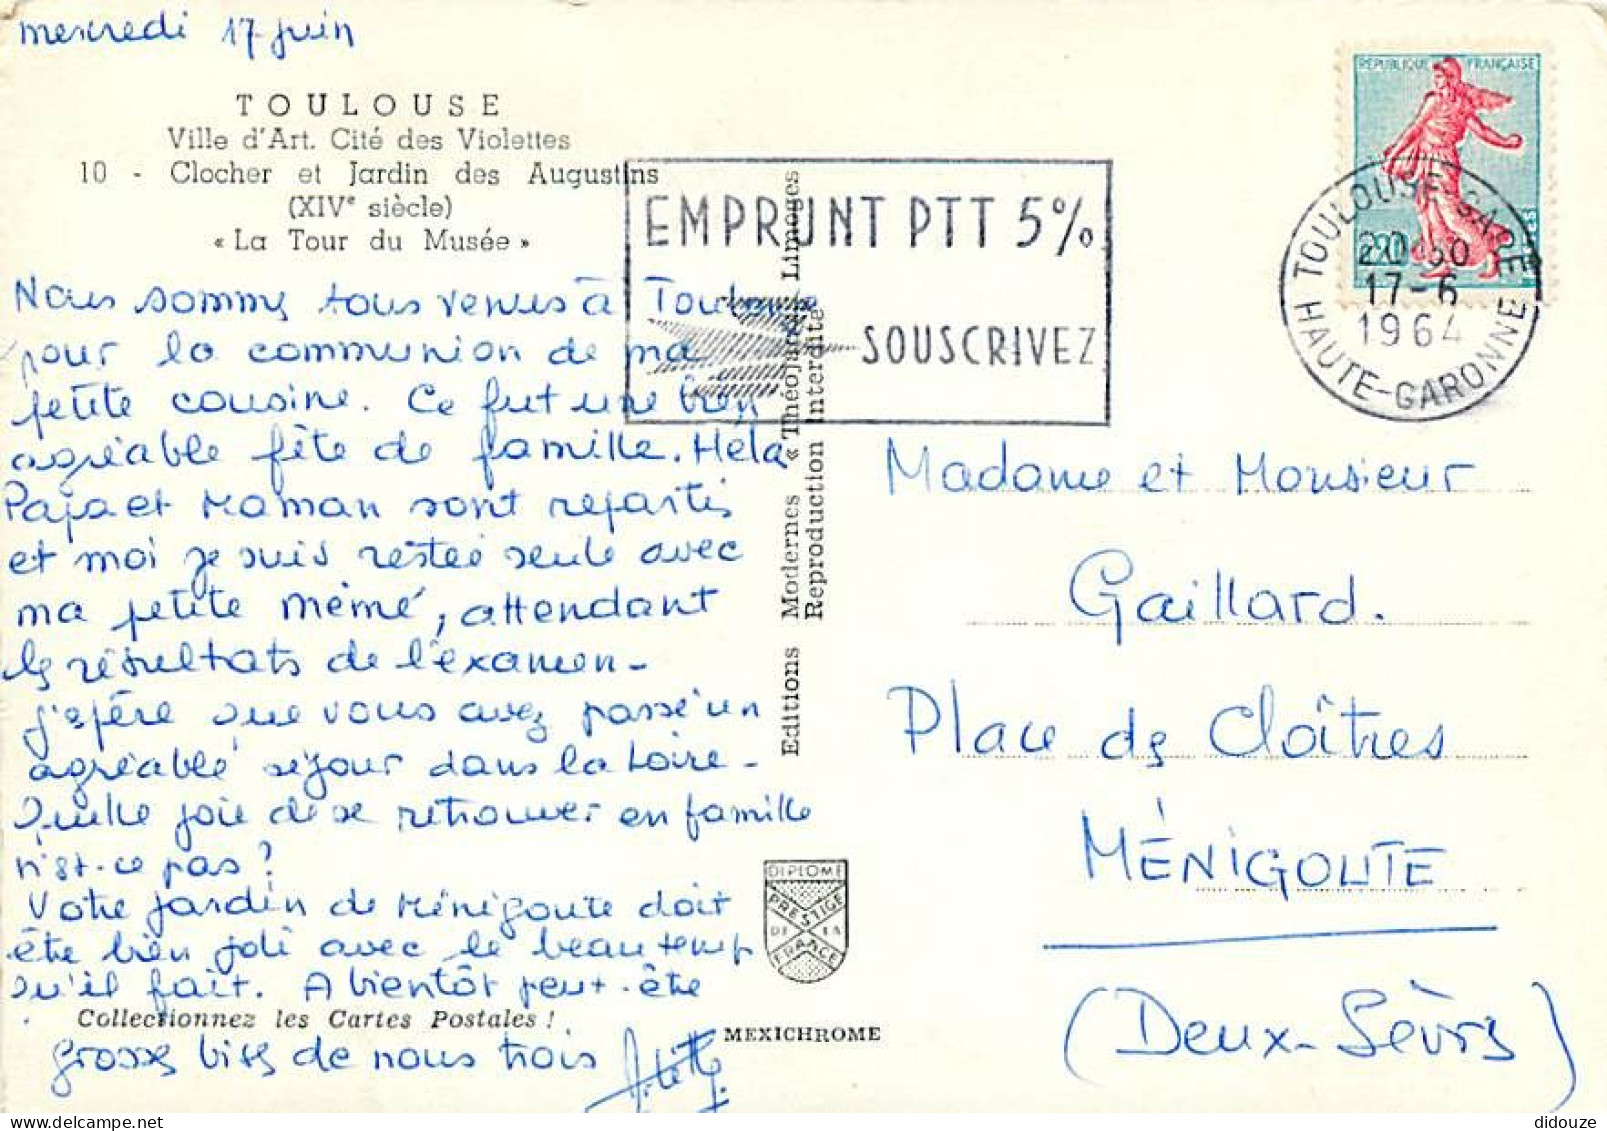 mercredi 17 juin
TOULOUSE
Ville d'Art. Cité des Violettes
10 - Clocher et Jardin des Augustins
(XIVe siècle)
« La Tour du Musée »
Nous sommes tous venus à Toulouse
pour la communion de ma
petite cousine. Ce fut une bien
agréable fête de famille. Hela
Papa et Maman sont repartis
et moi je suis restée seule avec
ma petite mémé, attendant
les résultats de l'examen -
J'espère que vous avez passé un
agréable séjour dans la Loire -
Quelle joie de se retrouver en famille
n'est-ce pas ?
Votre jardin de Ménigoute doit
être bien joli avec le beau temps
qu'il fait. A bientôt peut-être
Collectionnez les Cartes Postales !
grosses bises de nous trois
Editions Modernes « Théojac » Limoges
Reproduction Interdite
DIPLOME
PRESTIGE
DE LA
FRANCE
MEXICHROME
EMPRUNT PTT 5%
SOUSCRIVEZ
REPUBLIQUE FRANÇAISE
TOULOUSE GARE
17-6
1964
HAUTE-GARONNE
Madame et Monsieur
Gaillard.
Place des Cloîtres
MÉNIGOUTE
(Deux-Sèvres)
delcampe.net
didouze